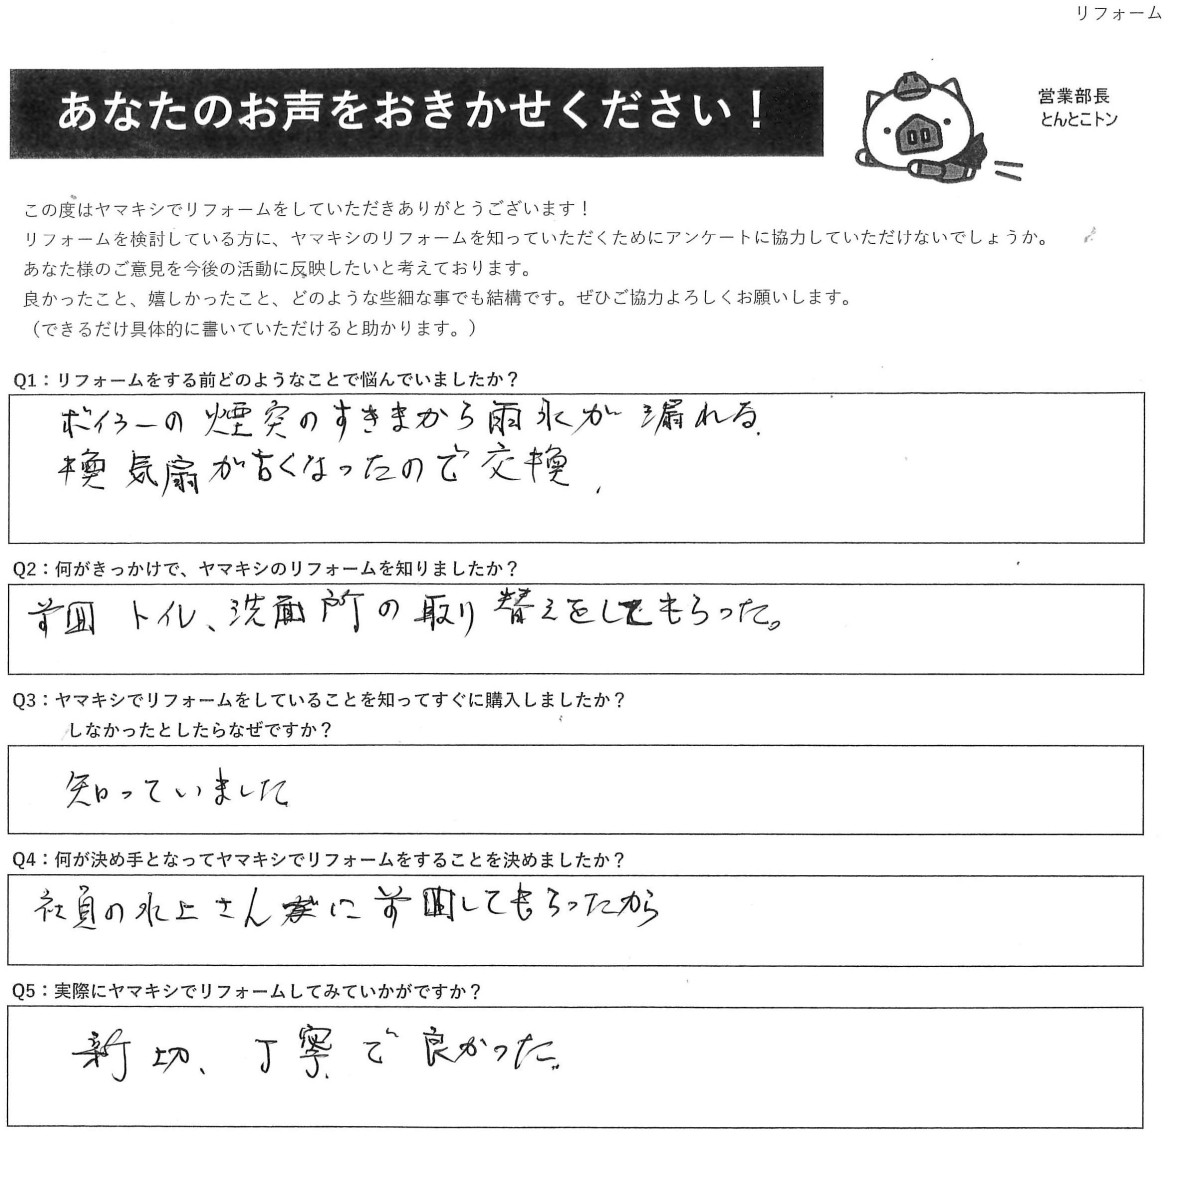 リフォーム
あなたのお声をおきかせください！
営業部長
とんとこトン
この度はヤマキシでリフォームをしていただきありがとうございます！
リフォームを検討している方に、ヤマキシのリフォームを知っていただくためにアンケートに協力していただけないでしょうか。
あなた様のご意見を今後の活動に反映したいと考えております。
良かったこと、嬉しかったこと、どのような些細な事でも結構です。ぜひご協力よろしくお願いします。
（できるだけ具体的に書いていただけると助かります。）
Q1：リフォームをする前どのようなことで悩んでいましたか？
ボイラーの煙突のすきまから雨水が漏れる。
換気扇が古くなったので交換。
Q2：何がきっかけで、ヤマキシのリフォームを知りましたか？
前回トイレ、洗面所の取り替えをしてもらった。
Q3：ヤマキシでリフォームをしていることを知ってすぐに購入しましたか？
しなかったとしたらなぜですか？
知っていました
Q4：何が決め手となってヤマキシでリフォームをすることを決めましたか？
社員の水上さんに前回してもらったから
Q5：実際にヤマキシでリフォームしてみていかがですか？
新切、丁寧で良かった。